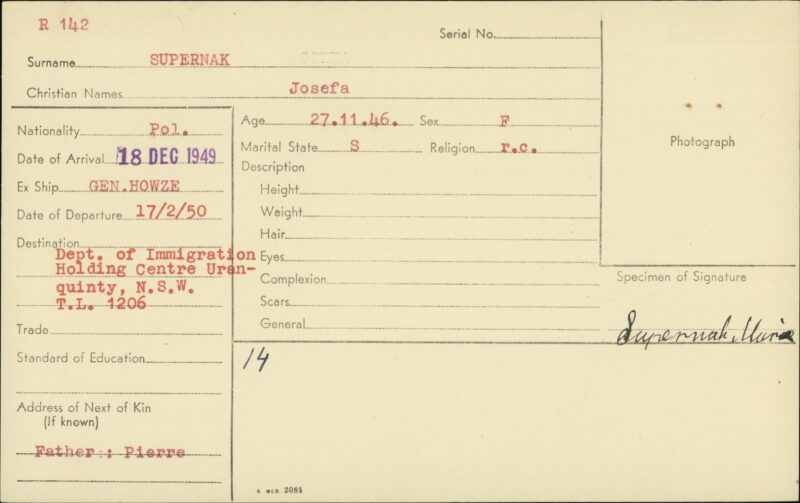 R 142
Serial No.
Surname SUPERNAK
Christian Names Josefa
Nationality Pol.
Date of Arrival 18 DEC 1949
Ex Ship GEN.HOWZE
Date of Departure 17/2/50
Destination
Dept. of Immigration
Holding Centre Uran-
quinty, N.S.W.
T.L. 1206
Trade
Standard of Education
Address of Next of Kin
(If known)
Father : Pierre
Age 27.11.46. Sex F
Marital State S Religion r.c.
Description
Height
Weight
Hair
Eyes
Complexion
Scars
General
14
Photograph
Specimen of Signature
Supernak, Maria
2085